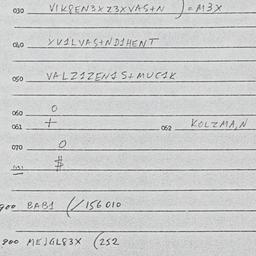 030 VIKPEN3XZ3XVAS+N ) = M3X
040 XV1LVAS+ND1HENT
050 VALZ1ZEN1S+MUC1K
060 O
061 + 062 KOLZMA,N
070 O
$
900 BAB1 (/156010
900 MEJGL83X (252